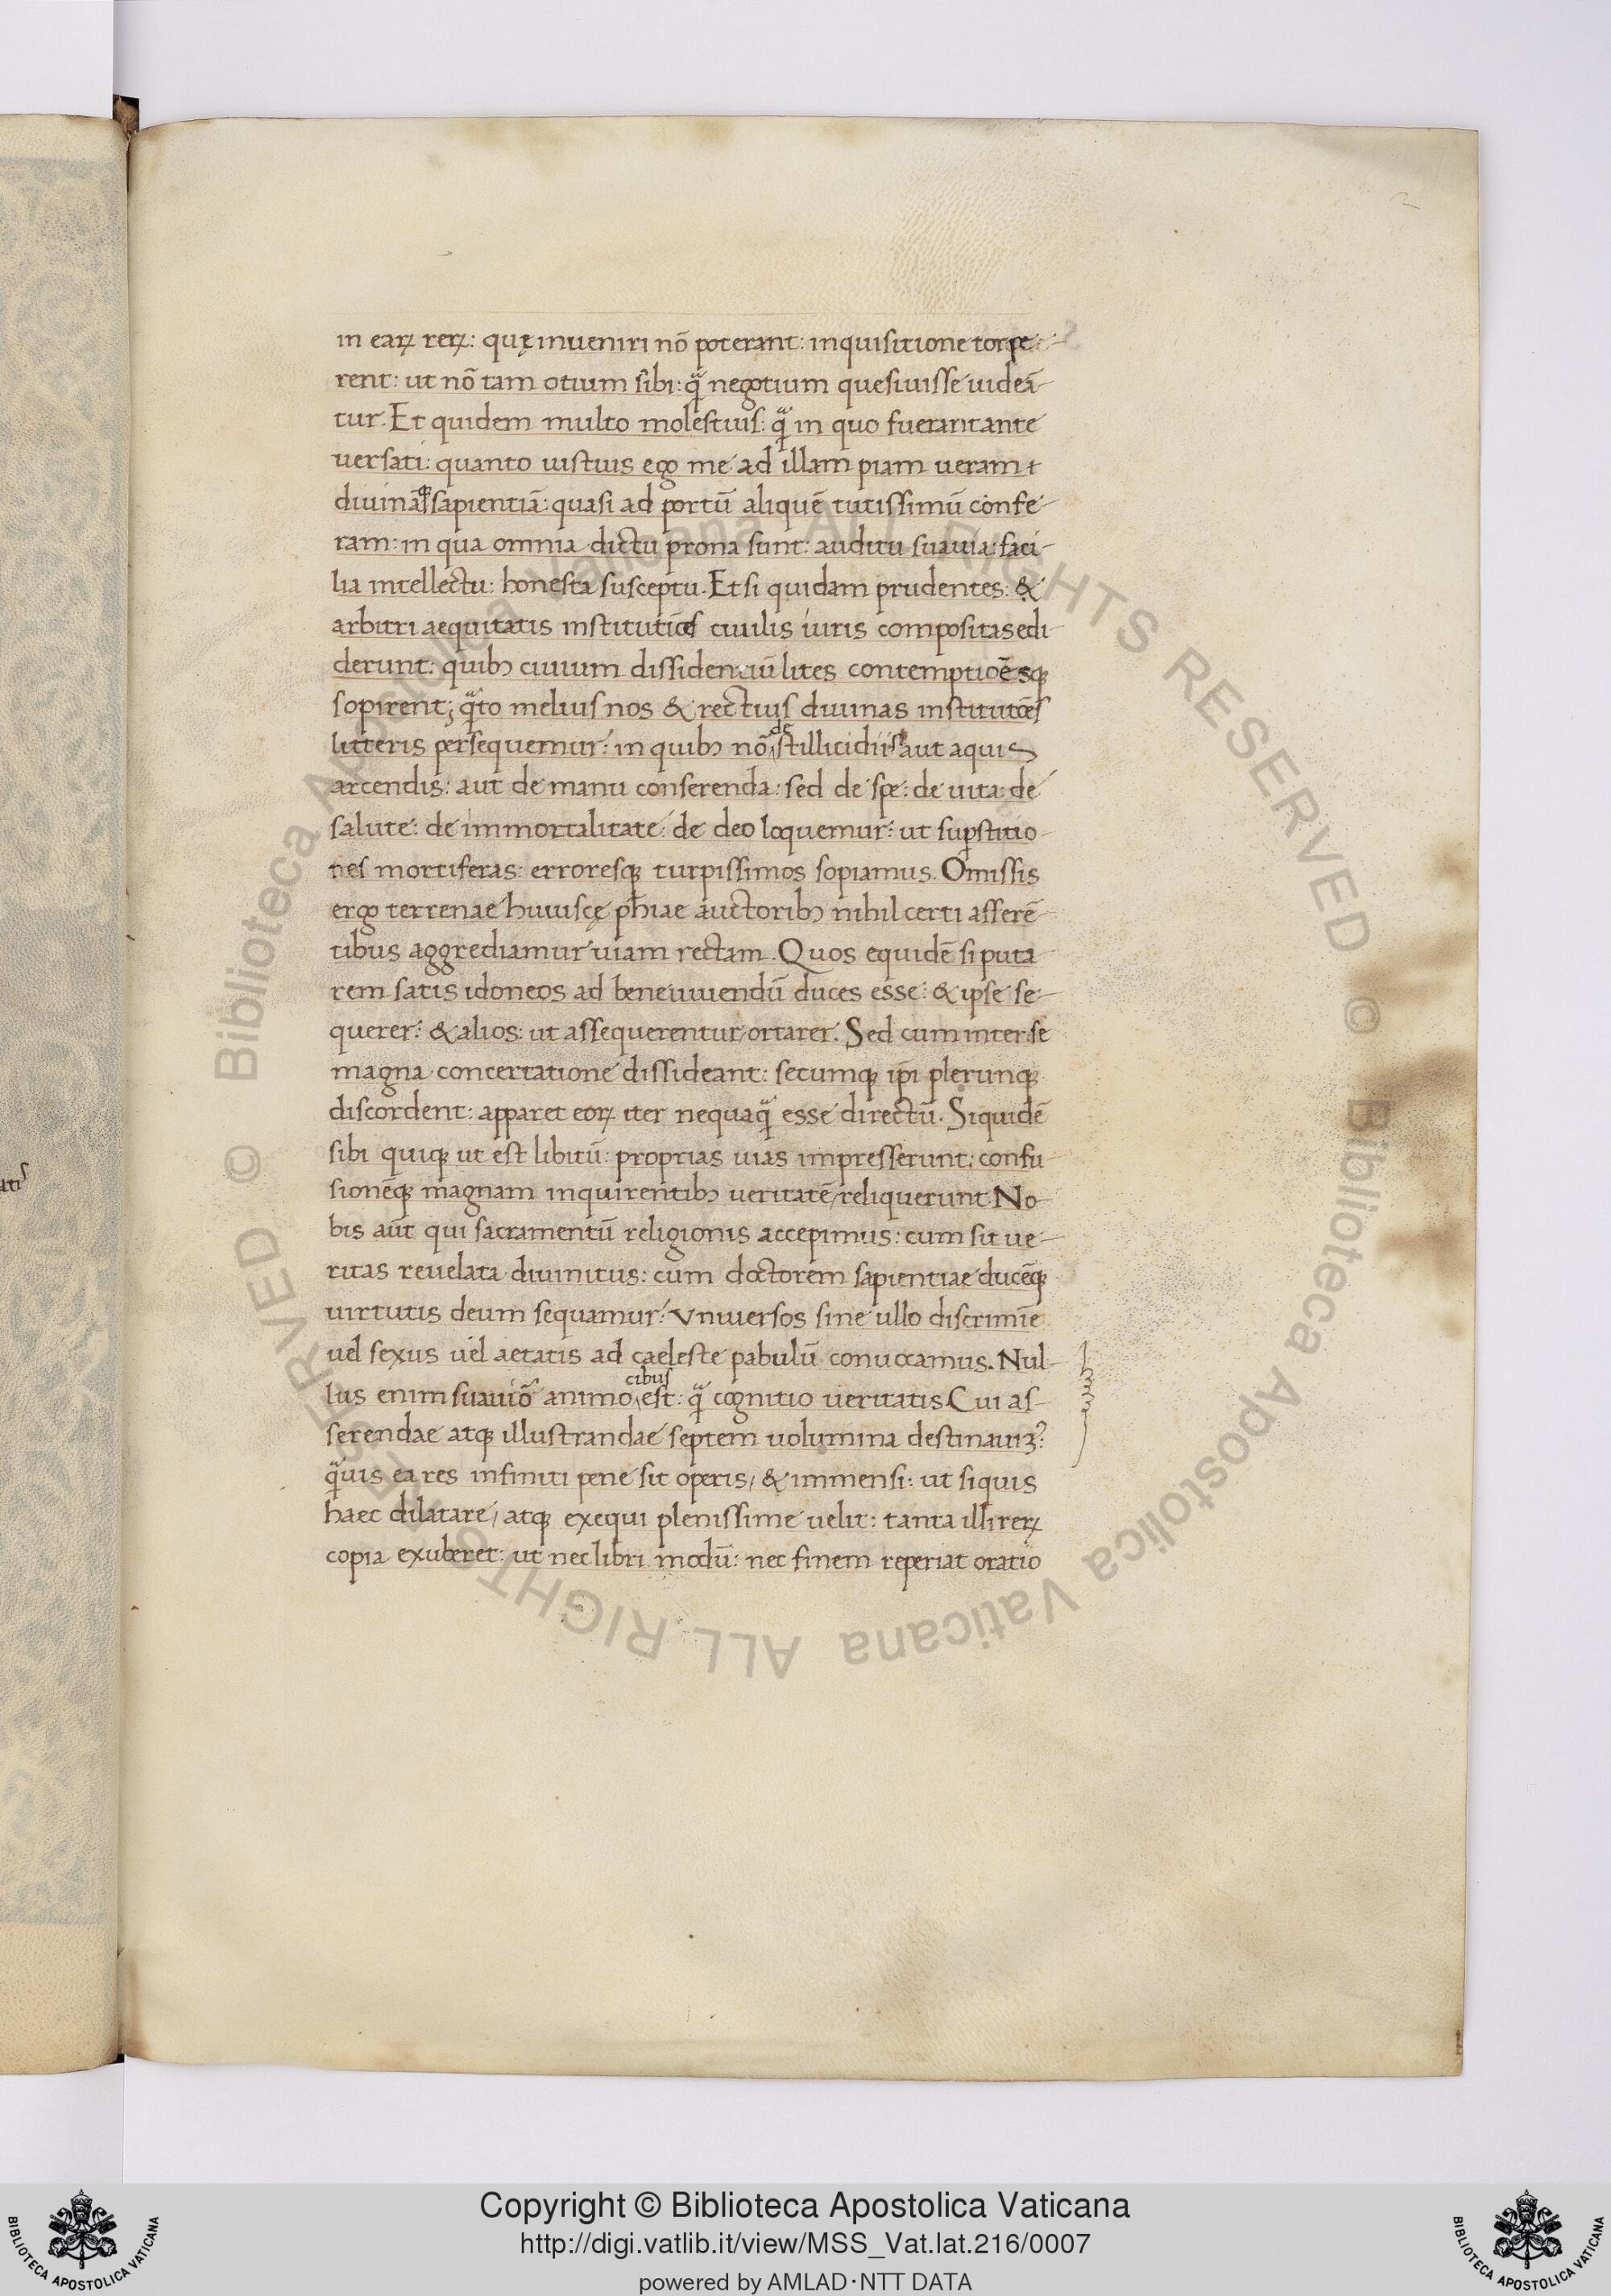 in eaꝝ reꝝ: quę inueniri nō poterant: inquisitione torpe-
rent: ut nō tam otium sibi: qͣ̃ negotium quesiuisse uideā-
tur. Et quidem multo molestius: qͣ̃ in quo fuerant ante
uersati: quanto iustius ego me ad illam piam ueram &
diuinā sapientiā: quasi ad portū aliquē tutissimū confe-
ram: in qua omnia dictu prona sunt: auditu suauia: faci-
lia intellectu: honesta susceptu. Et si quidam prudentes: &
arbitri aequitatis institutiōes ciuilis iuris compositas edi
derunt: quibꝫ ciuium dissidentiū lites contemptiōesqꝫ
sopirent; qͣ̃to melius nos & rectius diuinas institutōes
litteris persequemur: in quibꝫ nō de stillicidiis aut aquis
arcendis: aut de manu conserenda: sed de spe: de uita: de
salute: de immortalitate: de deo loquemur: ut suꝑstitio-
nes mortiferas: erroresqꝫ turpissimos sopiamus. Omissis
ergo terrenae huiuscę pħiae auctoribꝫ nihil certi asserē-
tibus aggrediamur uiam rectam. Quos equidē si puta-
rem satis idoneos ad bene uiuendū duces esse: & ipse se-
querer: & alios: ut assequerentur/ ortarer. Sed cum inter se
magna concertatione dissideant: secumqꝫ ip̄i plerunqꝫ
discordent: apparet eoꝝ iter nequaqͣ̃ esse directū. Siquidē
sibi quiqꝫ ut est libitū: proprias uias impresserunt: confu-
sionēqꝫ magnam inquirentibꝫ ueritatē/ reliquerunt. No-
bis aūt qui sacramentū religionis accepimus: cum sit ue-
ritas reuelata diuinitus: cum doctorem sapientiae ducēqꝫ
uirtutis deum sequamur: Vniuersos sine ullo discrimīe
uel sexus uel aetatis ad caeleste pabulū conuocamus. Nul-
lus enim suauiōr animo cibus est: qͣ̃ cognitio ueritatis Cui as-
serendae atqꝫ illustrandae septem uolumina destinauimꝰ:
qͣ̃uis ea res infiniti pene sit operis/ & immensi: ut siquis
haec dilatare/ atqꝫ exequi plenissime uelit: tanta illi reꝝ
copia exuberet: ut nec libri modū: nec finem reperiat oratio
Copyright © Biblioteca Apostolica Vaticana
http://digi.vatlib.it/view/MSS_Vat.lat.216/0007
powered by AMLAD·NTT DATA